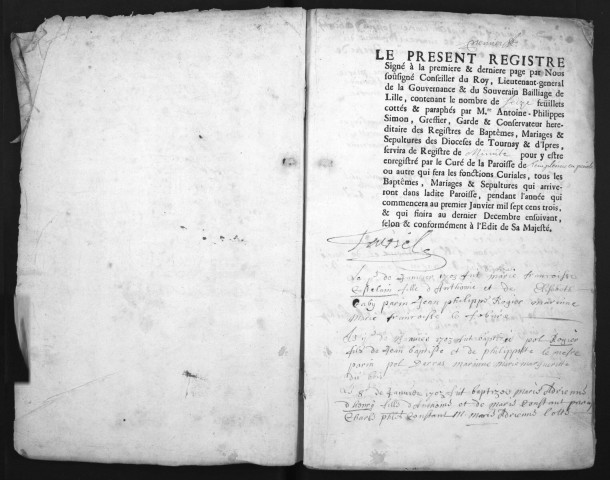 LE PRESENT REGISTRE
Signé à la premiere & derniere page par Nous
soussigné Conseiller du Roy, Lieutenant-general
de la Gouvernance & du Souverain Bailliage de
Lille, contenant le nombre de seize feuillets
cottés & paraphés par M.re Antoine-Philippes
Simon, Greffier, Garde & Conservateur here-
ditaire des Registres de Baptêmes, Mariages &
Sepultures des Dioceses de Tournay & d'Ipres,
servira de Registre de Minute pour y estre
enregistré par le Curé de la Paroisse de Templeuve en
ou autre qui fera les fonctions Curiales, tous les
Baptêmes, Mariages & Sepultures qui arrive-
ront dans ladite Paroisse, pendant l'année qui
commencera au premier Janvier mil sept cens trois,
& qui finira au dernier Decembre ensuivant,
selon & conformément à l'Edit de Sa Majesté,
Le de Janvier 1703 fut marie franroise
fille d'Anthoine et de Elisabeth
parin Jean philippe Rogier maraine
Marie franroise
de Janvier 1703 fut baptizé pol Rogier
fils de Jean baptiste et de philippotte le mestre
parin pol maraine marie margueritte
Le 8e de Janvier 1703 fut baptezee marie Adrienne
d'Henry fille d'Anthoine et de marie Constant parin
Charle Constant M. marie Adrienne